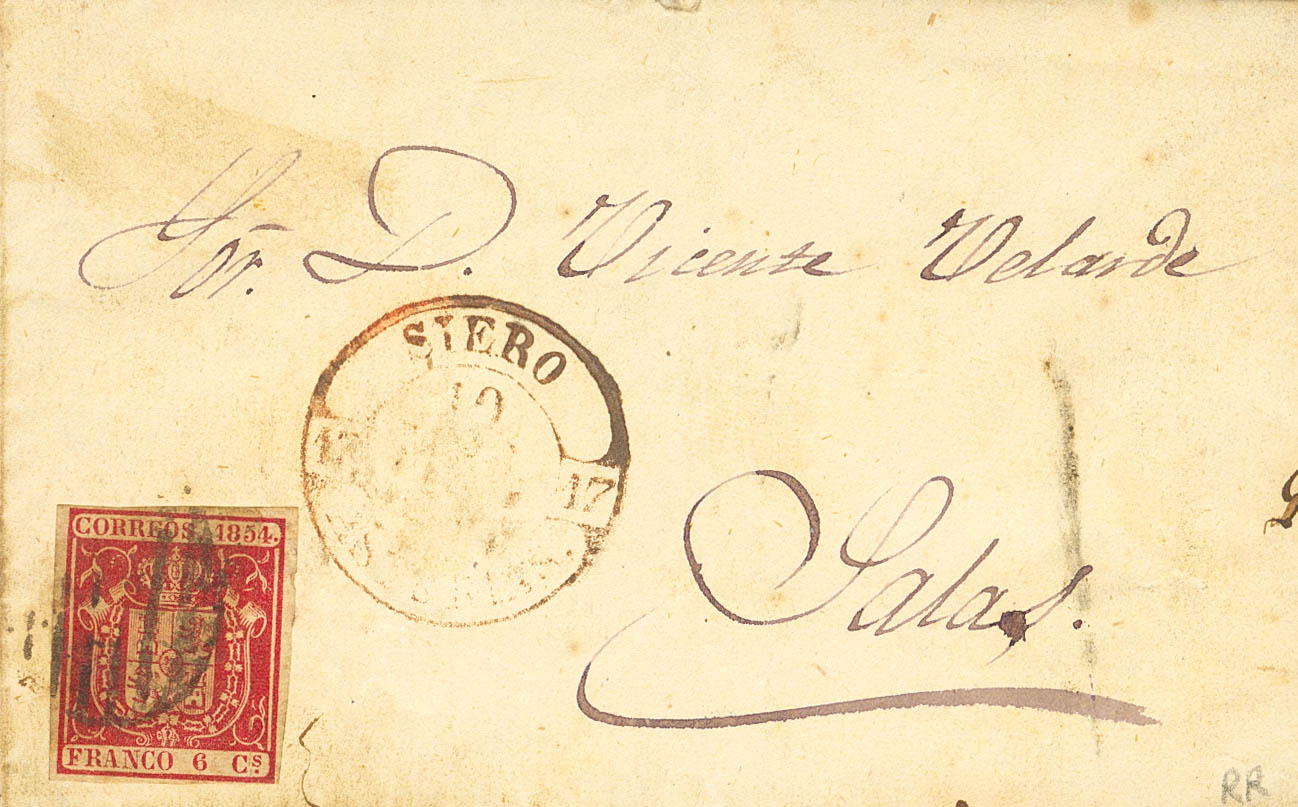 Sor. D. Vicente Velarde
SIERO
10
17
17
Salas.
CORREOS 1854.
FRANCO 6 Cs.
RR